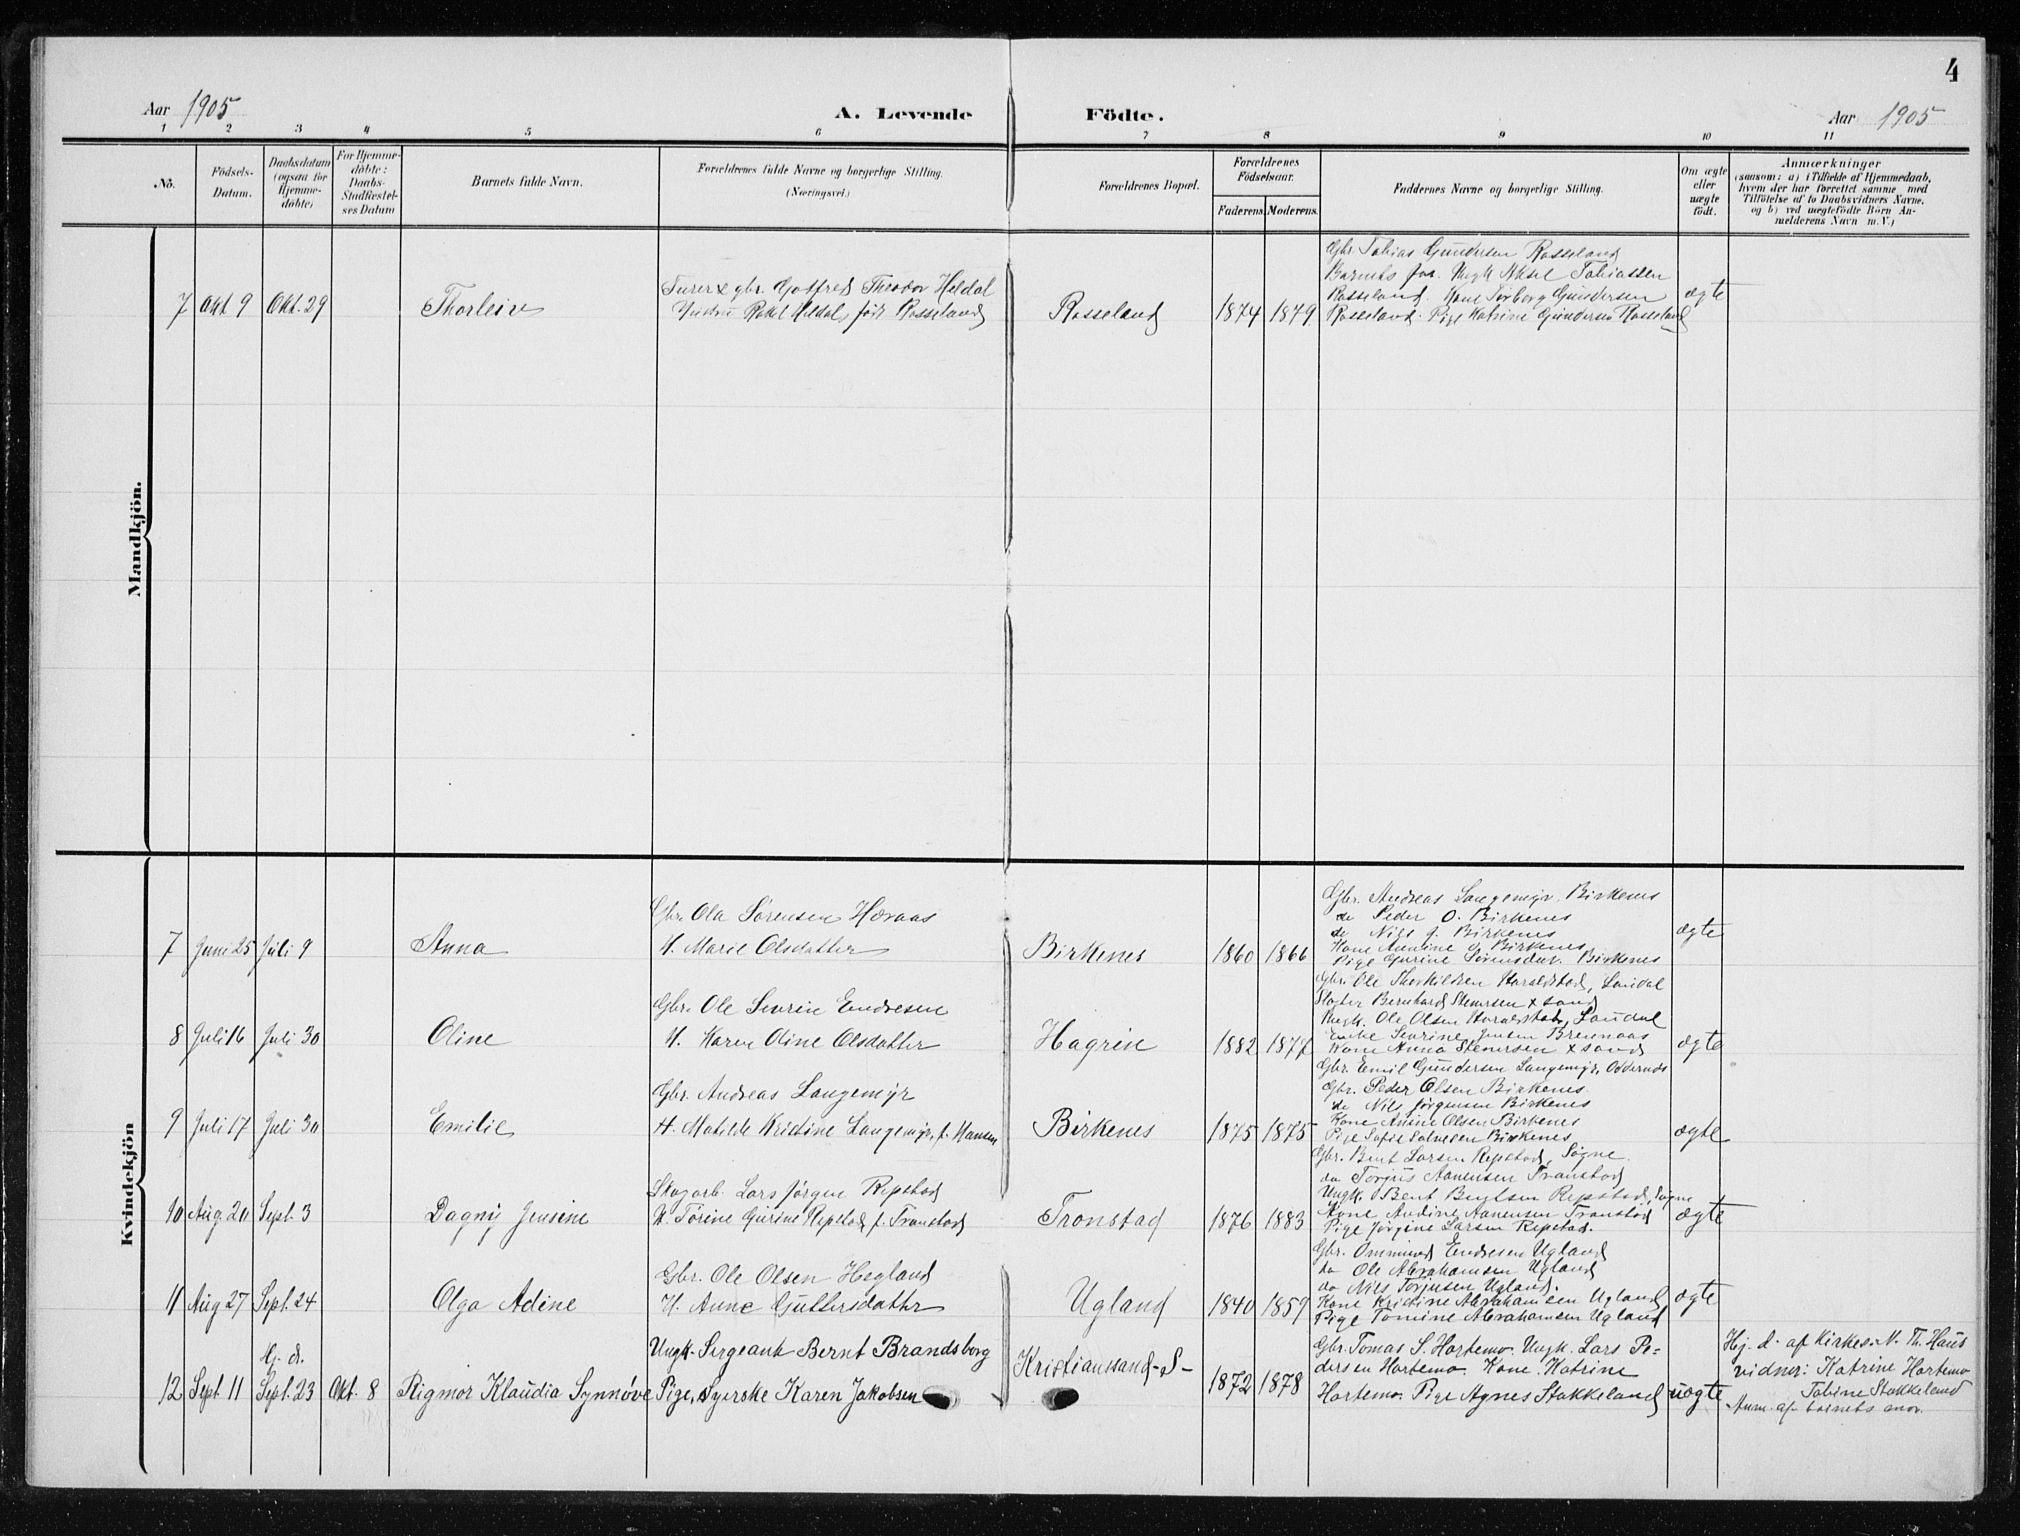 4
Aar 1905
A. Levende Födte.
Aar 1905
1 2 3 4 5 6 7 8 9 10 11
No.
Födsels-
Datum.
Daabsdatum
(ogsaa for
Hjemme-
döbte)
For Hjemme-
döbte:
Daabs-
Stadfæstel-
ses Datum
Barnets fulde Navn.
Forældrenes fulde Navne og borgerlige Stilling.
(Næringsvei.)
Forældrenes Bopæl.
Forældrenes
Födselsaar.
Faderens. Moderens.
Faddernes Navne og borgerlige Stilling.
Om ægte
eller
uægte
födt.
Anmærkninger
(saasom: a) i Tilfælde af Hjemmedaab,
hvem der har forrettet samme med
Tilföielse af to Daabsvidners Navne.
og b) ved uægtefödte Börn An-
melderens Navn m. V.)
Mandkjön.
7 Okt 9 Okt. 29
Thorleiv
gbr. Gotfred Theodor Heldal
Hustru Rakel Heldal, født Rosseland
Rosseland
1874 1879
Gbr. Tobias Gundersen Rosseland
Barnets far. Ungk Aksel Tobiassen
Rosseland. Kone Torborg Gundersen
Rosseland. Pige Katrine Gundersen Rosseland
ægte
Kvindekjön
7 Juni 25 Juli 9
Anna
Gbr. Ola Sørensen Høraas
H. Marie Olsdatter
Birkenes
1860 1866
Gbr. Andreas Langemyr. Birkenes
do Peder O. Birkenes
do Nils J. Birkenes
Kone Birkenes
Pige Gurine Sørensdat. Birkenes
ægte
8 Juli 16 Juli 30
Oline
Gbr. Ole Sevrin Endresen
H. Karen Oline Olsdatter
Hagrein
1882 1877
Gbr. Ole Thorkildsen Haraldstad, Laudal
Bernhard Stenersen
Ungk. Ole Olsen Haraldstad, Laudal
Enke Sevrine Jensen Brennaas
Kone Anna Stenersen
ægte
9 Juli 17 Juli 30
Emilie
Gbr. Andreas Langemyr
H. Matilde Kristine Langemyr, f. Hansen
Birkenes
1875 1875
Gbr. Emil Gundersen Langemyr, Oddernes
Gbr. Peder Olsen Birkenes
do Nils Jørgensen Birkenes
Kone Anine Olsen Birkenes
Pige Sofie Salvesen Birkenes
ægte
10 Aug. 20 Sept. 3
Dagny Jensine
Skogarb. Lars Jørgen Repstad
H. Torine Gurine Repstad f. Tronstad
Tronstad
1876 1883
Gbr. Bent Larsen Repstad, Søgne.
do Torjus Aanensen Tronstad
Ungk. Bent Bentsen Repstad, Søgne
Kone Andine Aanensen Tronstad
Pige Jørgine Larsen Repstad.
ægte
11 Aug 27 Sept. 24
Olga Adine
Gbr. Ole Olsen Hegland
H. Anne Guttersdatter
Ugland
1840 1859
Gbr. Ommund Endresen Ugland
do Ole Abrahamsen Ugland
do Nils Torjusen Ugland.
Kone Kristine Abrahamsen Ugland
Pige Tomine Abrahamsen Ugland
ægte
12 Sept. 11
Hj. d.
Sept. 23
Okt. 8
Rigmor Klaudia Synnøve
Ungk. Sergeant Bernt Brandsborg
Pige, Syerske Karen Jakobsen
Kristianssand-S-
1872 1878
Gbr. Tomas S. Hortemo. Ungk. Lars Pe-
dersen Hortemo. Kone Katrine
Hortemo. Pige Agnes Stokkeland
uægte
Hj. d. af Kirkes. N. Th. Haus
vidner: Katrine Hortemo
Tobine Stokkeland
Anm. af barnets mor.